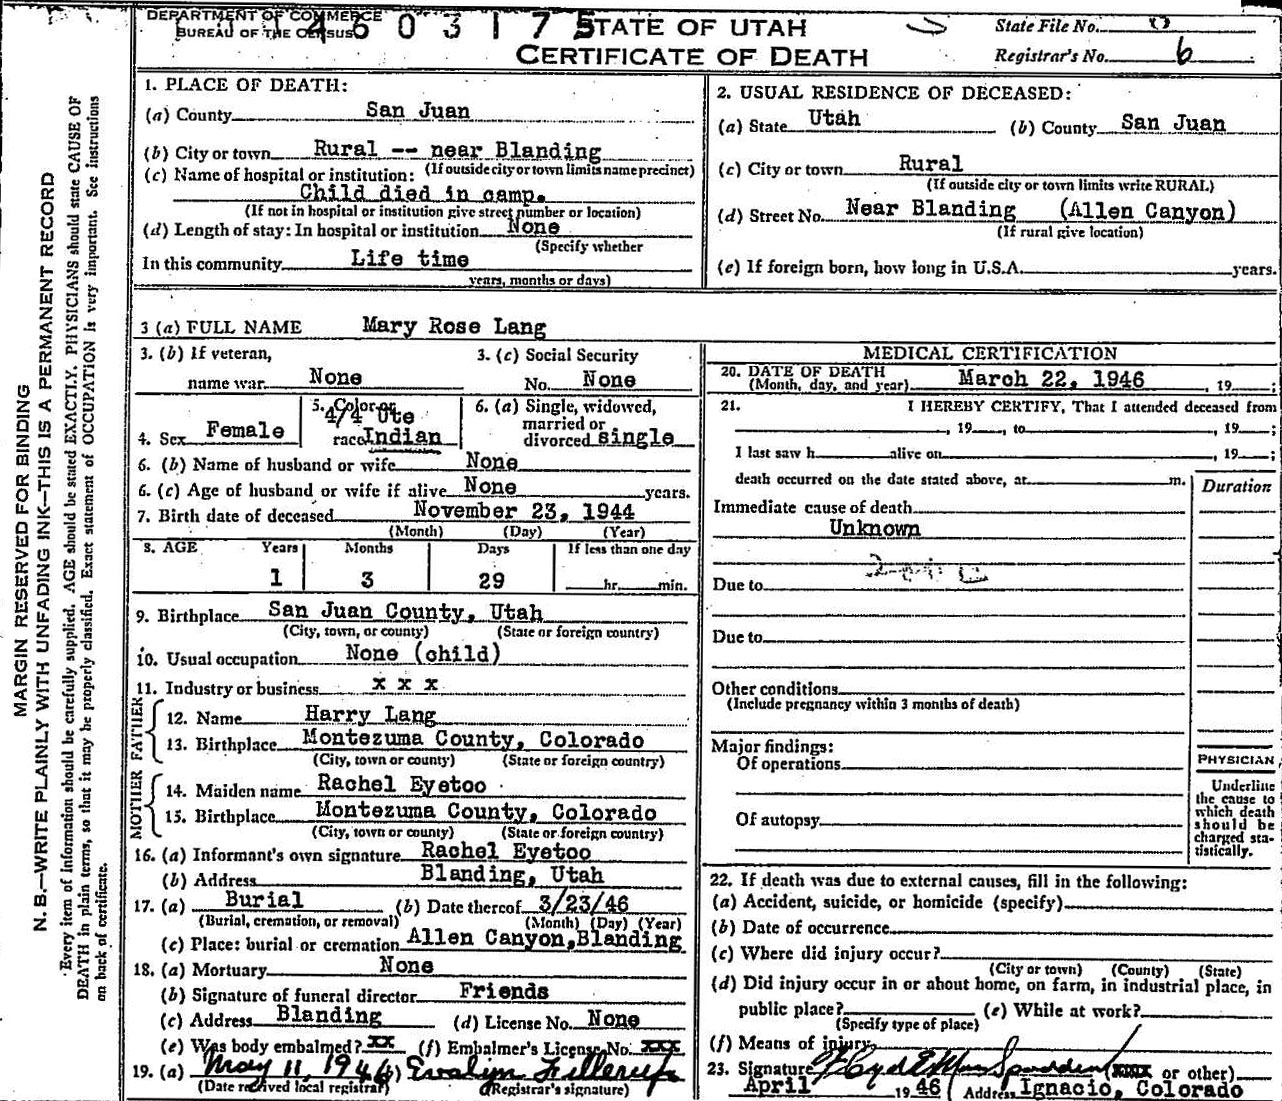 DEPARTMENT OF COMMERCE
BUREAU OF THE CENSUS
4 6 0 3 1 7 5
STATE OF UTAH
CERTIFICATE OF DEATH
State File No. 8
Registrar's No. 6
MARGIN RESERVED FOR BINDING
N. B.—WRITE PLAINLY WITH UNFADING INK—THIS IS A PERMANENT RECORD
Every item of information should be carefully supplied. AGE should be stated EXACTLY. PHYSICIANS should state CAUSE OF
DEATH in plain terms, so that it may be properly classified. Exact statement of OCCUPATION is very important. See instructions
on back of certificate.
1. PLACE OF DEATH:
(a) County San Juan
(b) City or town Rural -- near Blanding
(If outside city or town limits name precinct)
(c) Name of hospital or institution:
Child died in camp.
(If not in hospital or institution give street number or location)
(d) Length of stay: In hospital or institution None
(Specify whether
In this community Life time
years, months or days)
2. USUAL RESIDENCE OF DECEASED:
(a) State Utah (b) County San Juan
(c) City or town Rural
(If outside city or town limits write RURAL)
(d) Street No. Near Blanding (Allen Canyon)
(If rural give location)
(e) If foreign born, how long in U.S.A. years.
3 (a) FULL NAME Mary Rose Lang
3. (b) If veteran,
name war None
3. (c) Social Security
No. None
4. Sex Female
5. Color or
4/4 Ute
race Indian
6. (a) Single, widowed,
married or
divorced single
6. (b) Name of husband or wife None
6. (c) Age of husband or wife if alive None years.
7. Birth date of deceased November 23, 1944
(Month) (Day) (Year)
8. AGE Years Months Days If less than one day
1 3 29 hr. min.
9. Birthplace San Juan County, Utah
(City, town, or county) (State or foreign country)
10. Usual occupation None (child)
11. Industry or business x x x
FATHER
12. Name Harry Lang
13. Birthplace Montezuma County, Colorado
(City, town or county) (State or foreign country)
MOTHER
14. Maiden name Rachel Eyetoo
15. Birthplace Montezuma County, Colorado
(City, town or county) (State or foreign country)
16. (a) Informant's own signature Rachel Eyetoo
(b) Address Blanding, Utah
17. (a) Burial (b) Date thereof 3/23/46
(Burial, cremation, or removal) (Month) (Day) (Year)
(c) Place: burial or cremation Allen Canyon, Blanding
18. (a) Mortuary None
(b) Signature of funeral director Friends
(c) Address Blanding (d) License No. None
(e) Was body embalmed? xx (f) Embalmer's License No. xxx
19. (a) May 11, 1946 (b) Evalyn Fillerup
(Date received local registrar) (Registrar's signature)
MEDICAL CERTIFICATION
20. DATE OF DEATH
(Month, day, and year) March 22, 1946 , 19 ;
21. I HEREBY CERTIFY, That I attended deceased from
, 19 , to , 19 ;
I last saw h alive on , 19 ;
death occurred on the date stated above, at m.
Duration
Immediate cause of death
Unknown
Due to
Due to
Other conditions
(Include pregnancy within 3 months of death)
Major findings:
Of operations
Of autopsy
PHYSICIAN
Underline
the cause to
which death
should be
charged sta-
tistically.
22. If death was due to external causes, fill in the following:
(a) Accident, suicide, or homicide (specify)
(b) Date of occurrence
(c) Where did injury occur?
(City or town) (County) (State)
(d) Did injury occur in or about home, on farm, in industrial place, in
public place? (e) While at work?
(Specify type of place)
(f) Means of injury
23. Signature Floyd E Mac Spadden (xxxx or other)
April 19 46 Address Ignacio, Colorado